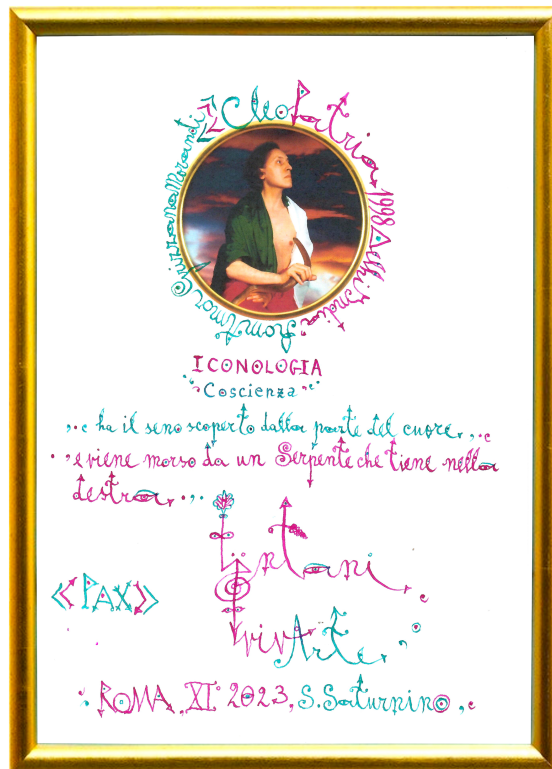 CleoPatria 1998 Delhi India
from Amor Ghizzana Morandi
ICONOLOGIA
Coscienza
e ha il seno scoperto dalla parte del cuore,
e viene morso da un Serpente che tiene nella
destra,
«PAX»
vivArte,
ROMA, XI° 2023, S. Saturnino,